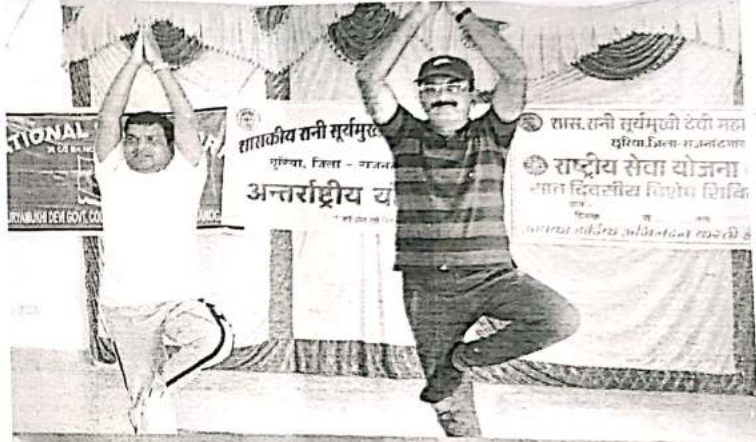 TIONAL
SURYAMUKHI DEVI GOVT. COL
शासकीय रानी सूर्यमुख
छुरिया, जिला - राजन
अन्तर्राष्ट्रीय यो
शास. रानी सूर्यमुखी देवी महा
छुरिया, जिला-राजनांदगांव
राष्ट्रीय सेवा योजना
सात दिवसीय विशेष शिवि
दिनांक
आपका हार्दिक अभिनंदन करती है